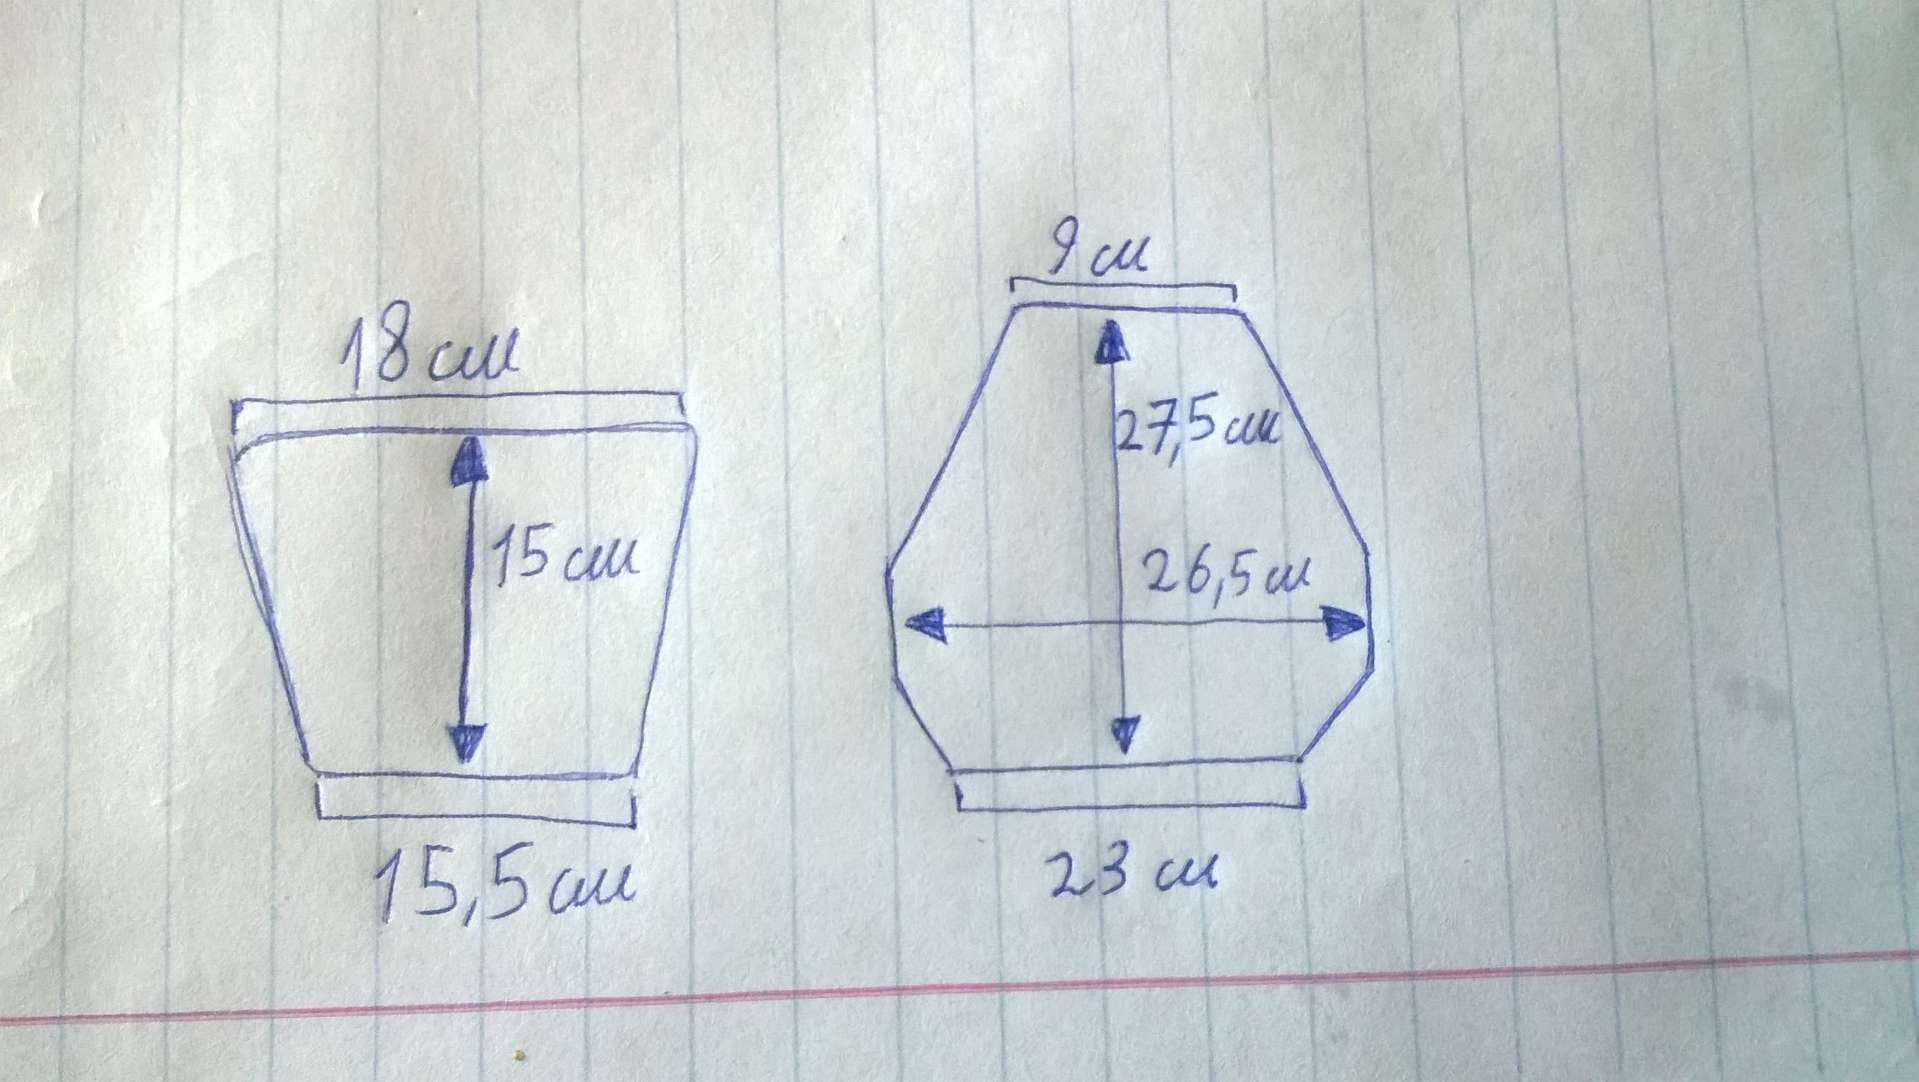 18 см
15 см
15,5 см
9 см
27,5 см
26,5 см
23 см